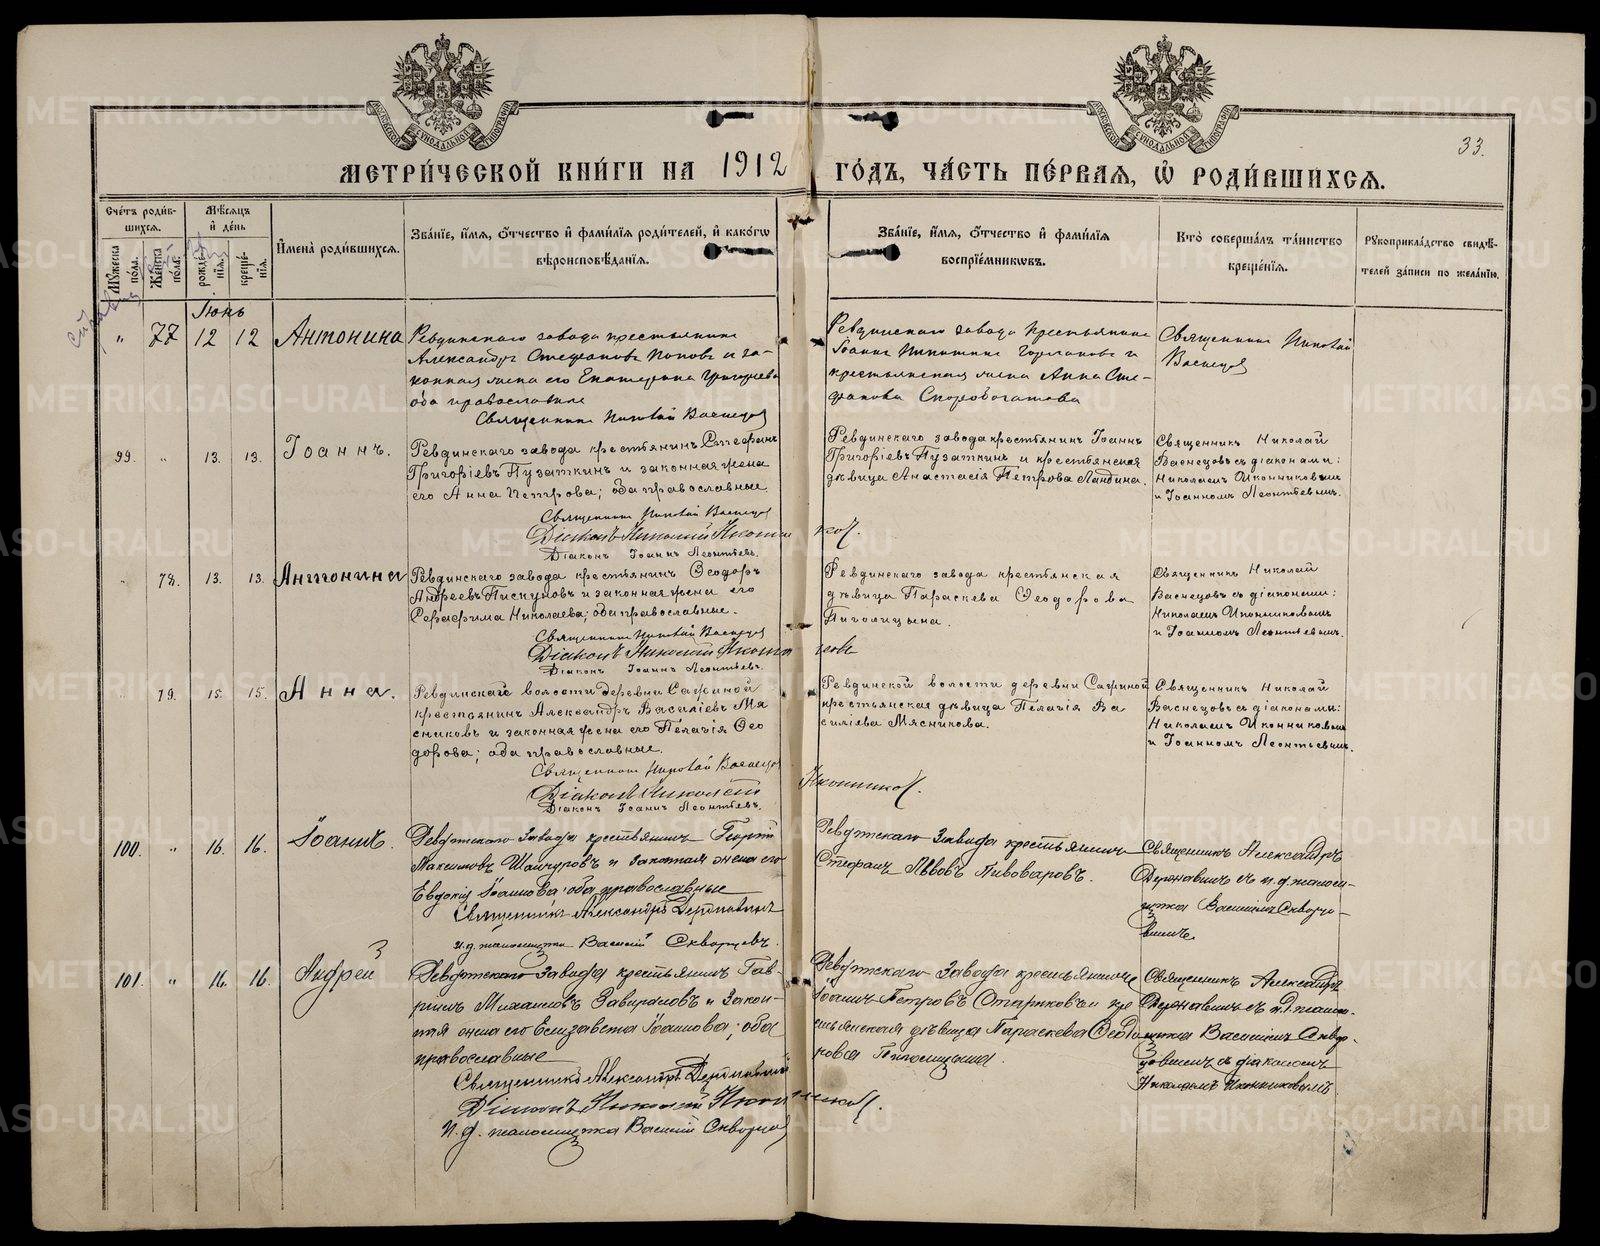 33.
МЕТРИ́ЧЕСКОЙ КНИ́ГИ НА 1912 ГО́ДЪ, ЧА́СТЬ ПЕ́РВАЯ, Ѡ҆ РОДИ́ВШИХСЯ.
Сче́тъ роди́в-
шихся.
Мѣ́сяцъ
и҆ де́нь
Мꙋ́жеска
по́ла.
Же́нска
по́ла.
рожде́-
нія.
креще́-
нія.
И҆мена̀ роди́вшихся.
Зва́ніе, и҆́мя, ѻ҆́тчество и҆ фами́лія роди́телей, и҆ како́гѡ
вѣроисповѣ́данія.
Зва́ніе, и҆́мя, ѻ҆́тчество и҆ фами́лія
воспріе́мникѡвъ.
Кто̀ соверша́лъ та́инство
креще́нія.
Рꙋкоприкла́дство свидѣ́-
телей за́писи по жела́нію.
Іюнь
" 77 12 12 Антонина
Ревдинскаго завода крестьянинъ
Александръ Стефановъ Поповъ и за-
конная жена его Екатерина Григорьева
оба православные
Священникъ Николай Васнецов
Ревдинскаго завода крестьянинъ
Іоаннъ Никитинъ и
крестьянская жена Анна Сте-
фанова Скоробогатова
Священникъ Николай
Васнецов
99. " 13. 13. Іоаннъ.
Ревдинскаго завода крестьянинъ Стефанъ
Григоріевъ Пузаткинъ и законная жена
его Анна Петрова; оба православные.
Священникъ Николай Васнецов
Діаконъ Николай Иконников.
Діаконъ Іоаннъ Леонтьевъ.
Ревдинскаго завода крестьянинъ Іоаннъ
Григоріевъ Пузаткинъ и крестьянская
дѣвица Анастасія Петрова Ландина.
Священникъ Николай
Васнецовъ съ діаконами:
Николаемъ Иконниковымъ
и Іоанномъ Леонтьевымъ.
" 78. 13. 13. Антонина
Ревдинскаго завода крестьянинъ Ѳеодоръ
Андреевъ Пискуновъ и законная жена его
Серафима Николаева; оба православные.
Священникъ Николай Васнецов
Діаконъ Николай Иконников
Діаконъ Іоаннъ Леонтьевъ.
Ревдинскаго завода крестьянская
дѣвица Параскева Ѳеодорова
Пиголицына.
Священникъ Николай
Васнецовъ съ діаконами:
Николаемъ Иконниковымъ
и Іоанномъ Леонтьевымъ.
" 79. 15. 15. Анна.
Ревдинской волости деревни Сажиной
крестьянинъ Александръ Василіевъ Мя
сниковъ и законная жена его Пелагія Ѳео
дорова; оба православные.
Священникъ Николай Васнецов
Діаконъ Николай Иконников.
Діаконъ Іоаннъ Леонтьевъ.
Ревдинской волости деревни Сажиной
крестьянская дѣвица Пелагія Ва
силіева Мясникова.
Священникъ Николай
Васнецовъ съ діаконами:
Николаемъ Иконниковымъ
и Іоанномъ Леонтьевымъ.
100. " 16. 16. Іоаннъ.
Ревдтскаго Завода крестьянинъ Георгій
Максимовъ Шанчуровъ и законная жена его
Евдокія Іоаннова оба православные
Священникъ Александръ Державинъ
и. д. псаломщика Василій Скворцевъ.
Ревдтскаго Завода крестьянинъ
Стефанъ Львовъ Пивоваровъ.
Священникъ Александръ
Державинъ съ и. д. псалом-
щика Василіемъ Скворцо-
вымъ.
101. " 16. 16. Андрей
Ревдтскаго Завода крестьянинъ Гав-
ріилъ Михаиловъ и Закон-
ная жена его Елизавета Іоаннова; оба
православные
Священникъ Александръ Державинъ
Діаконъ Николай Иконников.
и. д. псаломщика Василій Скворцов
Ревдтскаго Завода крестьянинъ
Іоаннъ Петровъ Стариковъ и кре
стьянская дѣвица Параскева Ѳеодо
рова Пиголицына.
Священникъ Александръ
Державинъ съ и. д. псалом-
щика Василіемъ Сквор-
цовымъ и діакономъ
Николаемъ Иконниковымъ.